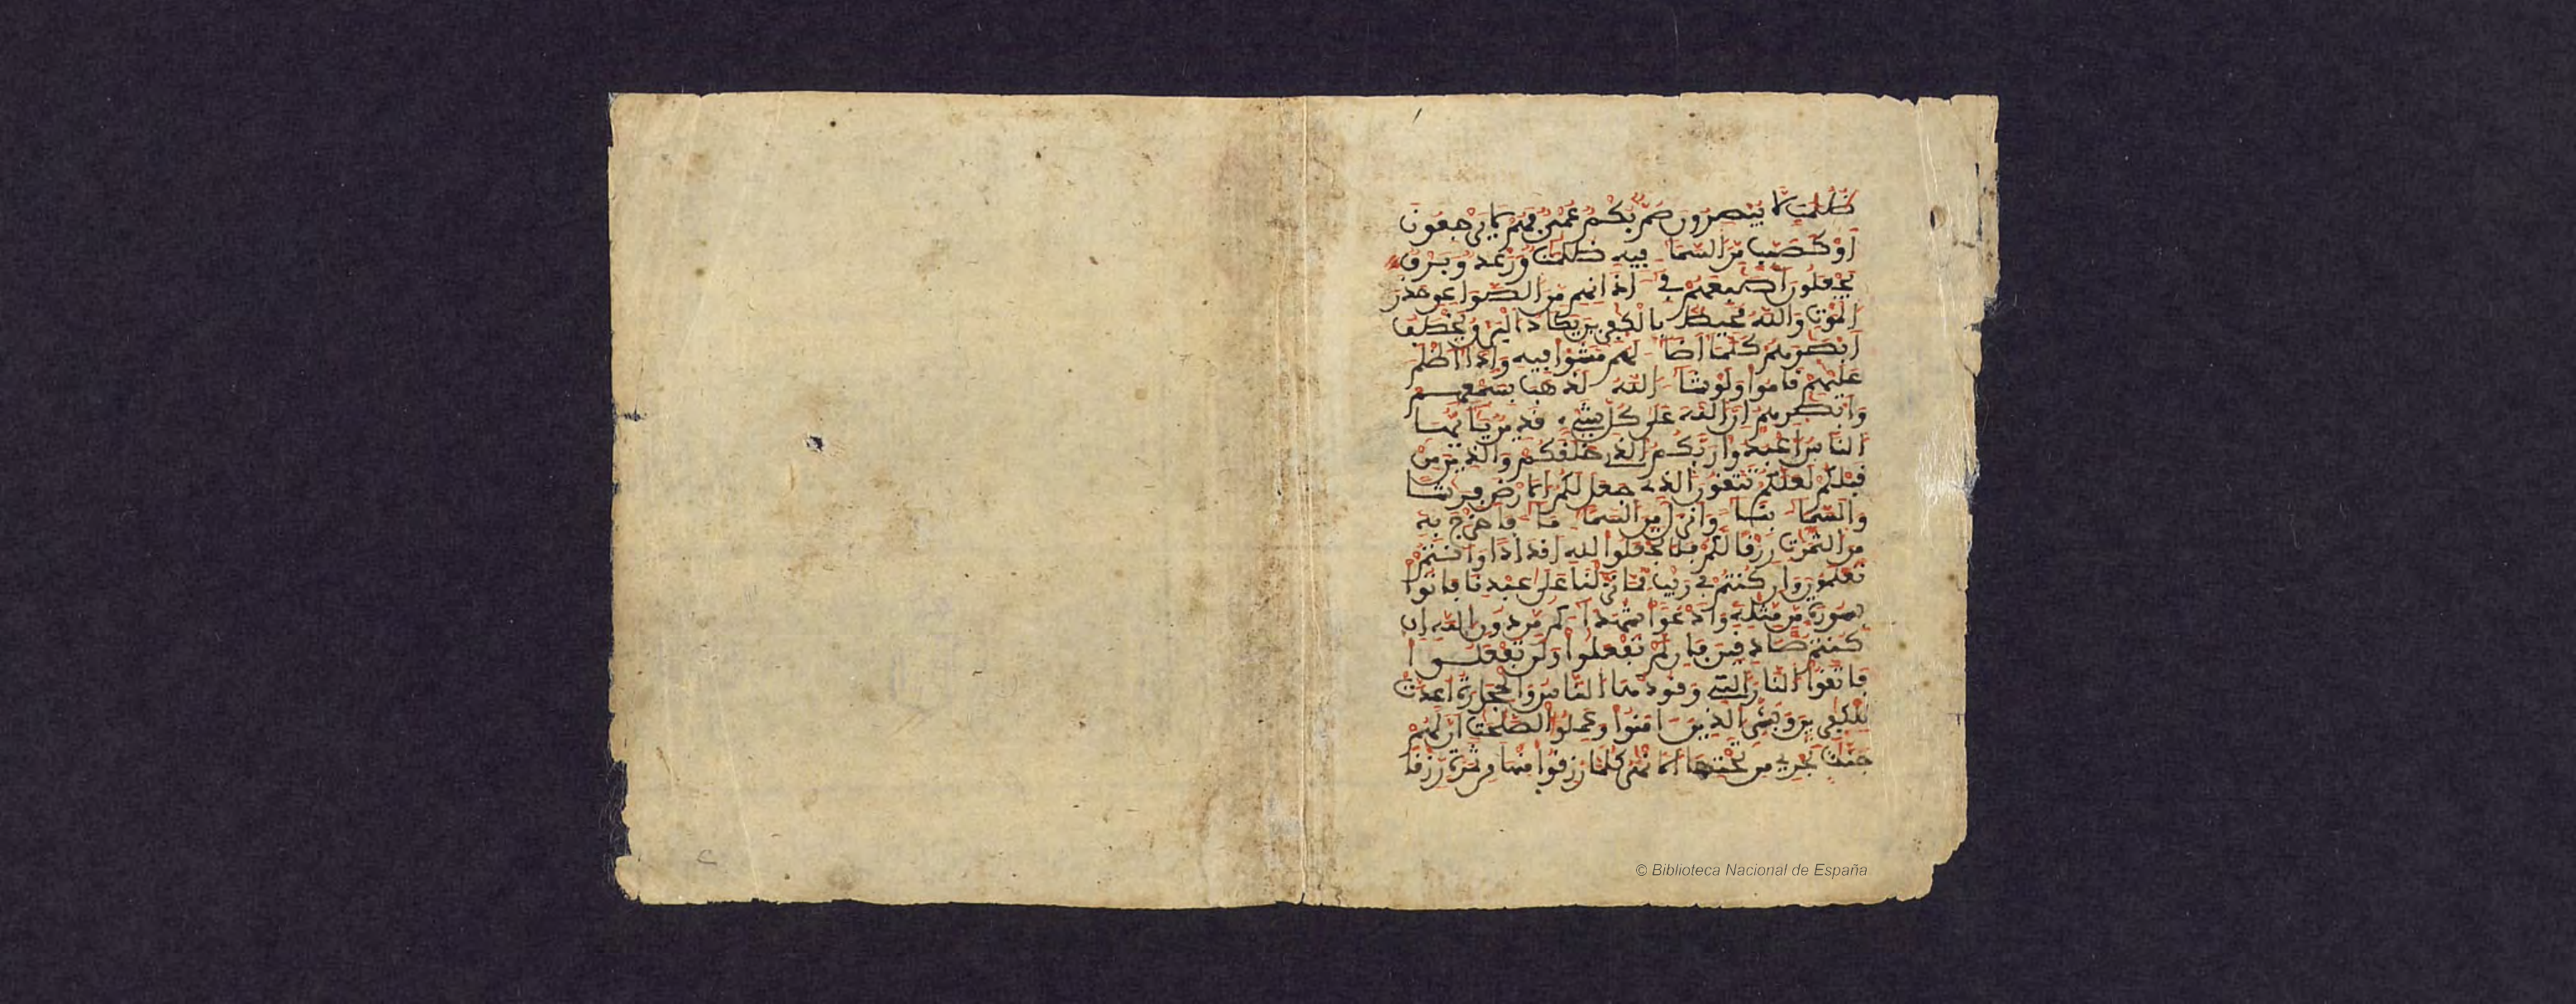 ظُلُمَٰتٍ لَّا يُبْصِرُونَ صُمٌّ بُكْمٌ عُمْىٌ فَهُمْ لَا يَرْجِعُونَ
أَوْ كَصَيِّبٍ مِّنَ السَّمَآءِ فِيهِ ظُلُمَٰتٌ وَرَعْدٌ وَبَرْقٌ
يَجْعَلُونَ أَصَٰبِعَهُمْ فِىٓ ءَاذَانِهِم مِّنَ الصَّوَٰعِقِ حَذَرَ
الْمَوْتِ وَاللَّهُ مُحِيطٌ بِالْكَٰفِرِينَ يَكَادُ الْبَرْقُ يَخْطَفُ
أَبْصَٰرَهُمْ كُلَّمَآ أَضَآءَ لَهُم مَّشَوْا فِيهِ وَإِذَآ أَظْلَمَ
عَلَيْهِمْ قَامُوا وَلَوْ شَآءَ اللَّهُ لَذَهَبَ بِسَمْعِهِمْ
وَأَبْصَٰرِهِمْ إِنَّ اللَّهَ عَلَىٰ كُلِّ شَىْءٍ قَدِيرٌ يَٰٓأَيُّهَا
النَّاسُ اعْبُدُوا رَبَّكُمُ الَّذِى خَلَقَكُمْ وَالَّذِينَ مِن
قَبْلِكُمْ لَعَلَّكُمْ تَتَّقُونَ الَّذِى جَعَلَ لَكُمُ الْأَرْضَ فِرَٰشًا
وَالسَّمَآءَ بِنَآءً وَأَنزَلَ مِنَ السَّمَآءِ مَآءً فَأَخْرَجَ بِهِ
مِنَ الثَّمَرَٰتِ رِزْقًا لَّكُمْ فَلَا تَجْعَلُوا لِلَّهِ أَندَادًا وَأَنتُمْ
تَعْلَمُونَ وَإِن كُنتُمْ فِى رَيْبٍ مِّمَّا نَزَّلْنَا عَلَىٰ عَبْدِنَا فَأْتُوا
بِسُورَةٍ مِّن مِّثْلِهِ وَادْعُوا شُهَدَآءَكُم مِّن دُونِ اللَّهِ إِن
كُنتُمْ صَٰدِقِينَ فَإِن لَّمْ تَفْعَلُوا وَلَن تَفْعَلُوا
فَاتَّقُوا النَّارَ الَّتِى وَقُودُهَا النَّاسُ وَالْحِجَارَةُ أُعِدَّتْ
لِلْكَٰفِرِينَ وَبَشِّرِ الَّذِينَ ءَامَنُوا وَعَمِلُوا الصَّٰلِحَٰتِ أَنَّ لَهُمْ
جَنَّٰتٍ تَجْرِى مِن تَحْتِهَا الْأَنْهَٰرُ كُلَّمَا رُزِقُوا مِنْهَا مِن ثَمَرَةٍ رِّزْقًا
© Biblioteca Nacional de España